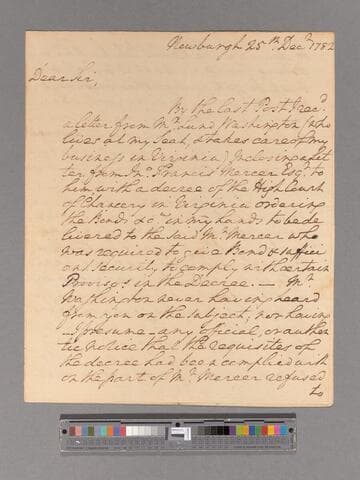 Newburgh 25th Decr 1782
Dear Sir,
By the last Post I recd
a letter from Mr Lund Washington (who
lives at my Seat, & takes care of my
business in Virginia) Inclosing a let
ter from Jno Francis Mercer Esqr to
him with a decree of the High Court
of Chancery in Virginia ordering
the Bonds &ca in my hands to be de
livered to the said Mr Mercer who
was required to give Bond & suffici
ent Security to comply with certain
Provisos in the Decree. — Mr
Washington never having heard
from you on the subject, nor having
— I presume — any official, or authen
tic notice that the requisites of
the decree had been complied with
on the part of Mr Mercer refused
to